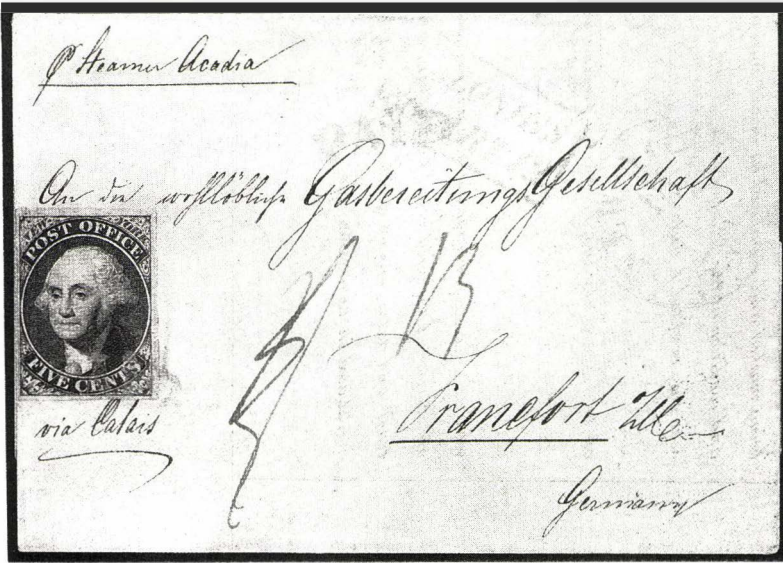 ℘ Steamer Acadia
An die wohllöbliche Gasbereitungs Gesellschaft
POST OFFICE
FIVE CENTS
via Calais
13
Francfort
Germany